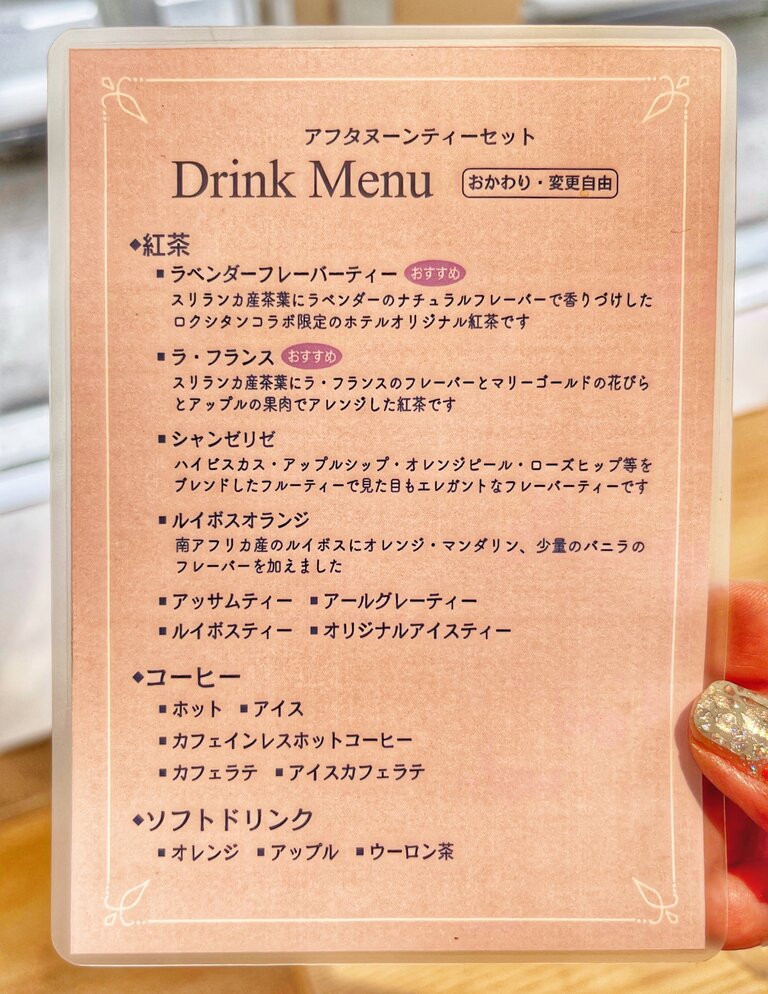 アフタヌーンティーセット
Drink Menu おかわり・変更自由
◆紅茶
■ ラベンダーフレーバーティー おすすめ
スリランカ産茶葉にラベンダーのナチュラルフレーバーで香りづけした
ロクシタンコラボ限定のホテルオリジナル紅茶です
■ ラ・フランス おすすめ
スリランカ産茶葉にラ・フランスのフレーバーとマリーゴールドの花びら
とアップルの果肉でアレンジした紅茶です
■ シャンゼリゼ
ハイビスカス・アップルシップ・オレンジピール・ローズヒップ等を
ブレンドしたフルーティーで見た目もエレガントなフレーバーティーです
■ ルイボスオランジ
南アフリカ産のルイボスにオレンジ・マンダリン、少量のバニラの
フレーバーを加えました
■ アッサムティー ■ アールグレーティー
■ ルイボスティー ■ オリジナルアイスティー
◆コーヒー
■ ホット ■ アイス
■ カフェインレスホットコーヒー
■ カフェラテ ■ アイスカフェラテ
◆ソフトドリンク
■ オレンジ ■ アップル ■ ウーロン茶